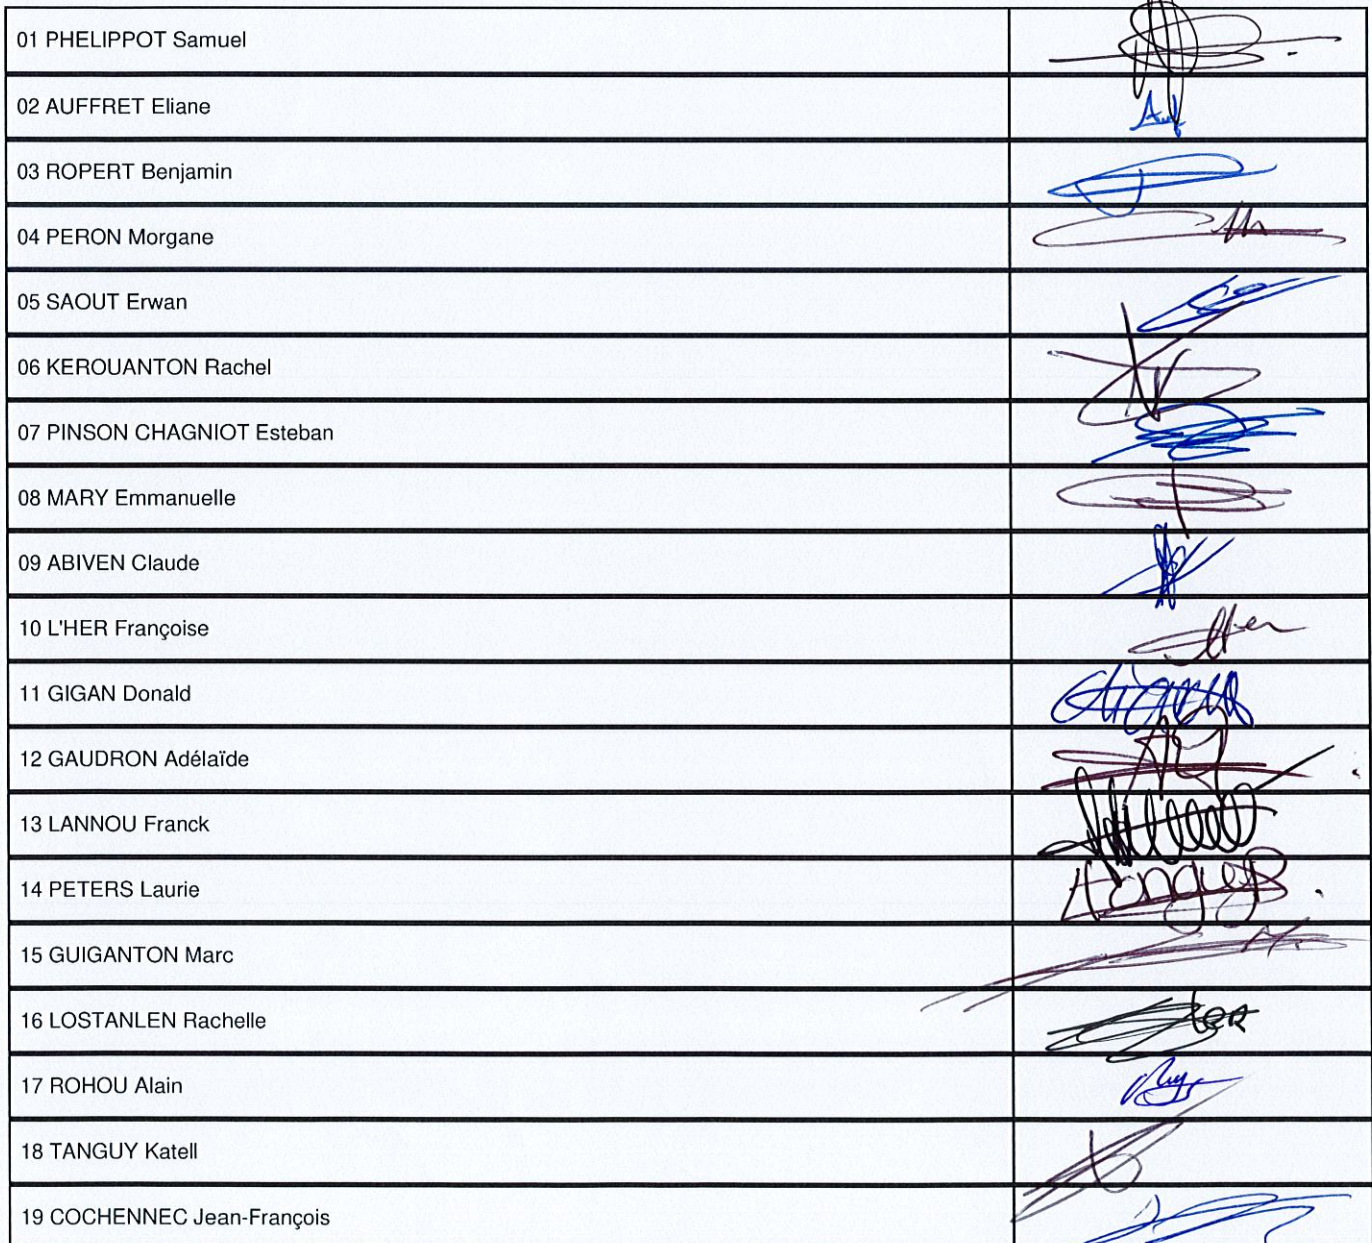 01 PHELIPPOT Samuel
02 AUFFRET Eliane
Auf
03 ROPERT Benjamin
04 PERON Morgane
05 SAOUT Erwan
06 KEROUANTON Rachel
07 PINSON CHAGNIOT Esteban
08 MARY Emmanuelle
09 ABIVEN Claude
10 L'HER Françoise
11 GIGAN Donald
12 GAUDRON Adélaïde
13 LANNOU Franck
14 PETERS Laurie
15 GUIGANTON Marc
16 LOSTANLEN Rachelle
17 ROHOU Alain
18 TANGUY Katell
19 COCHENNEC Jean-François